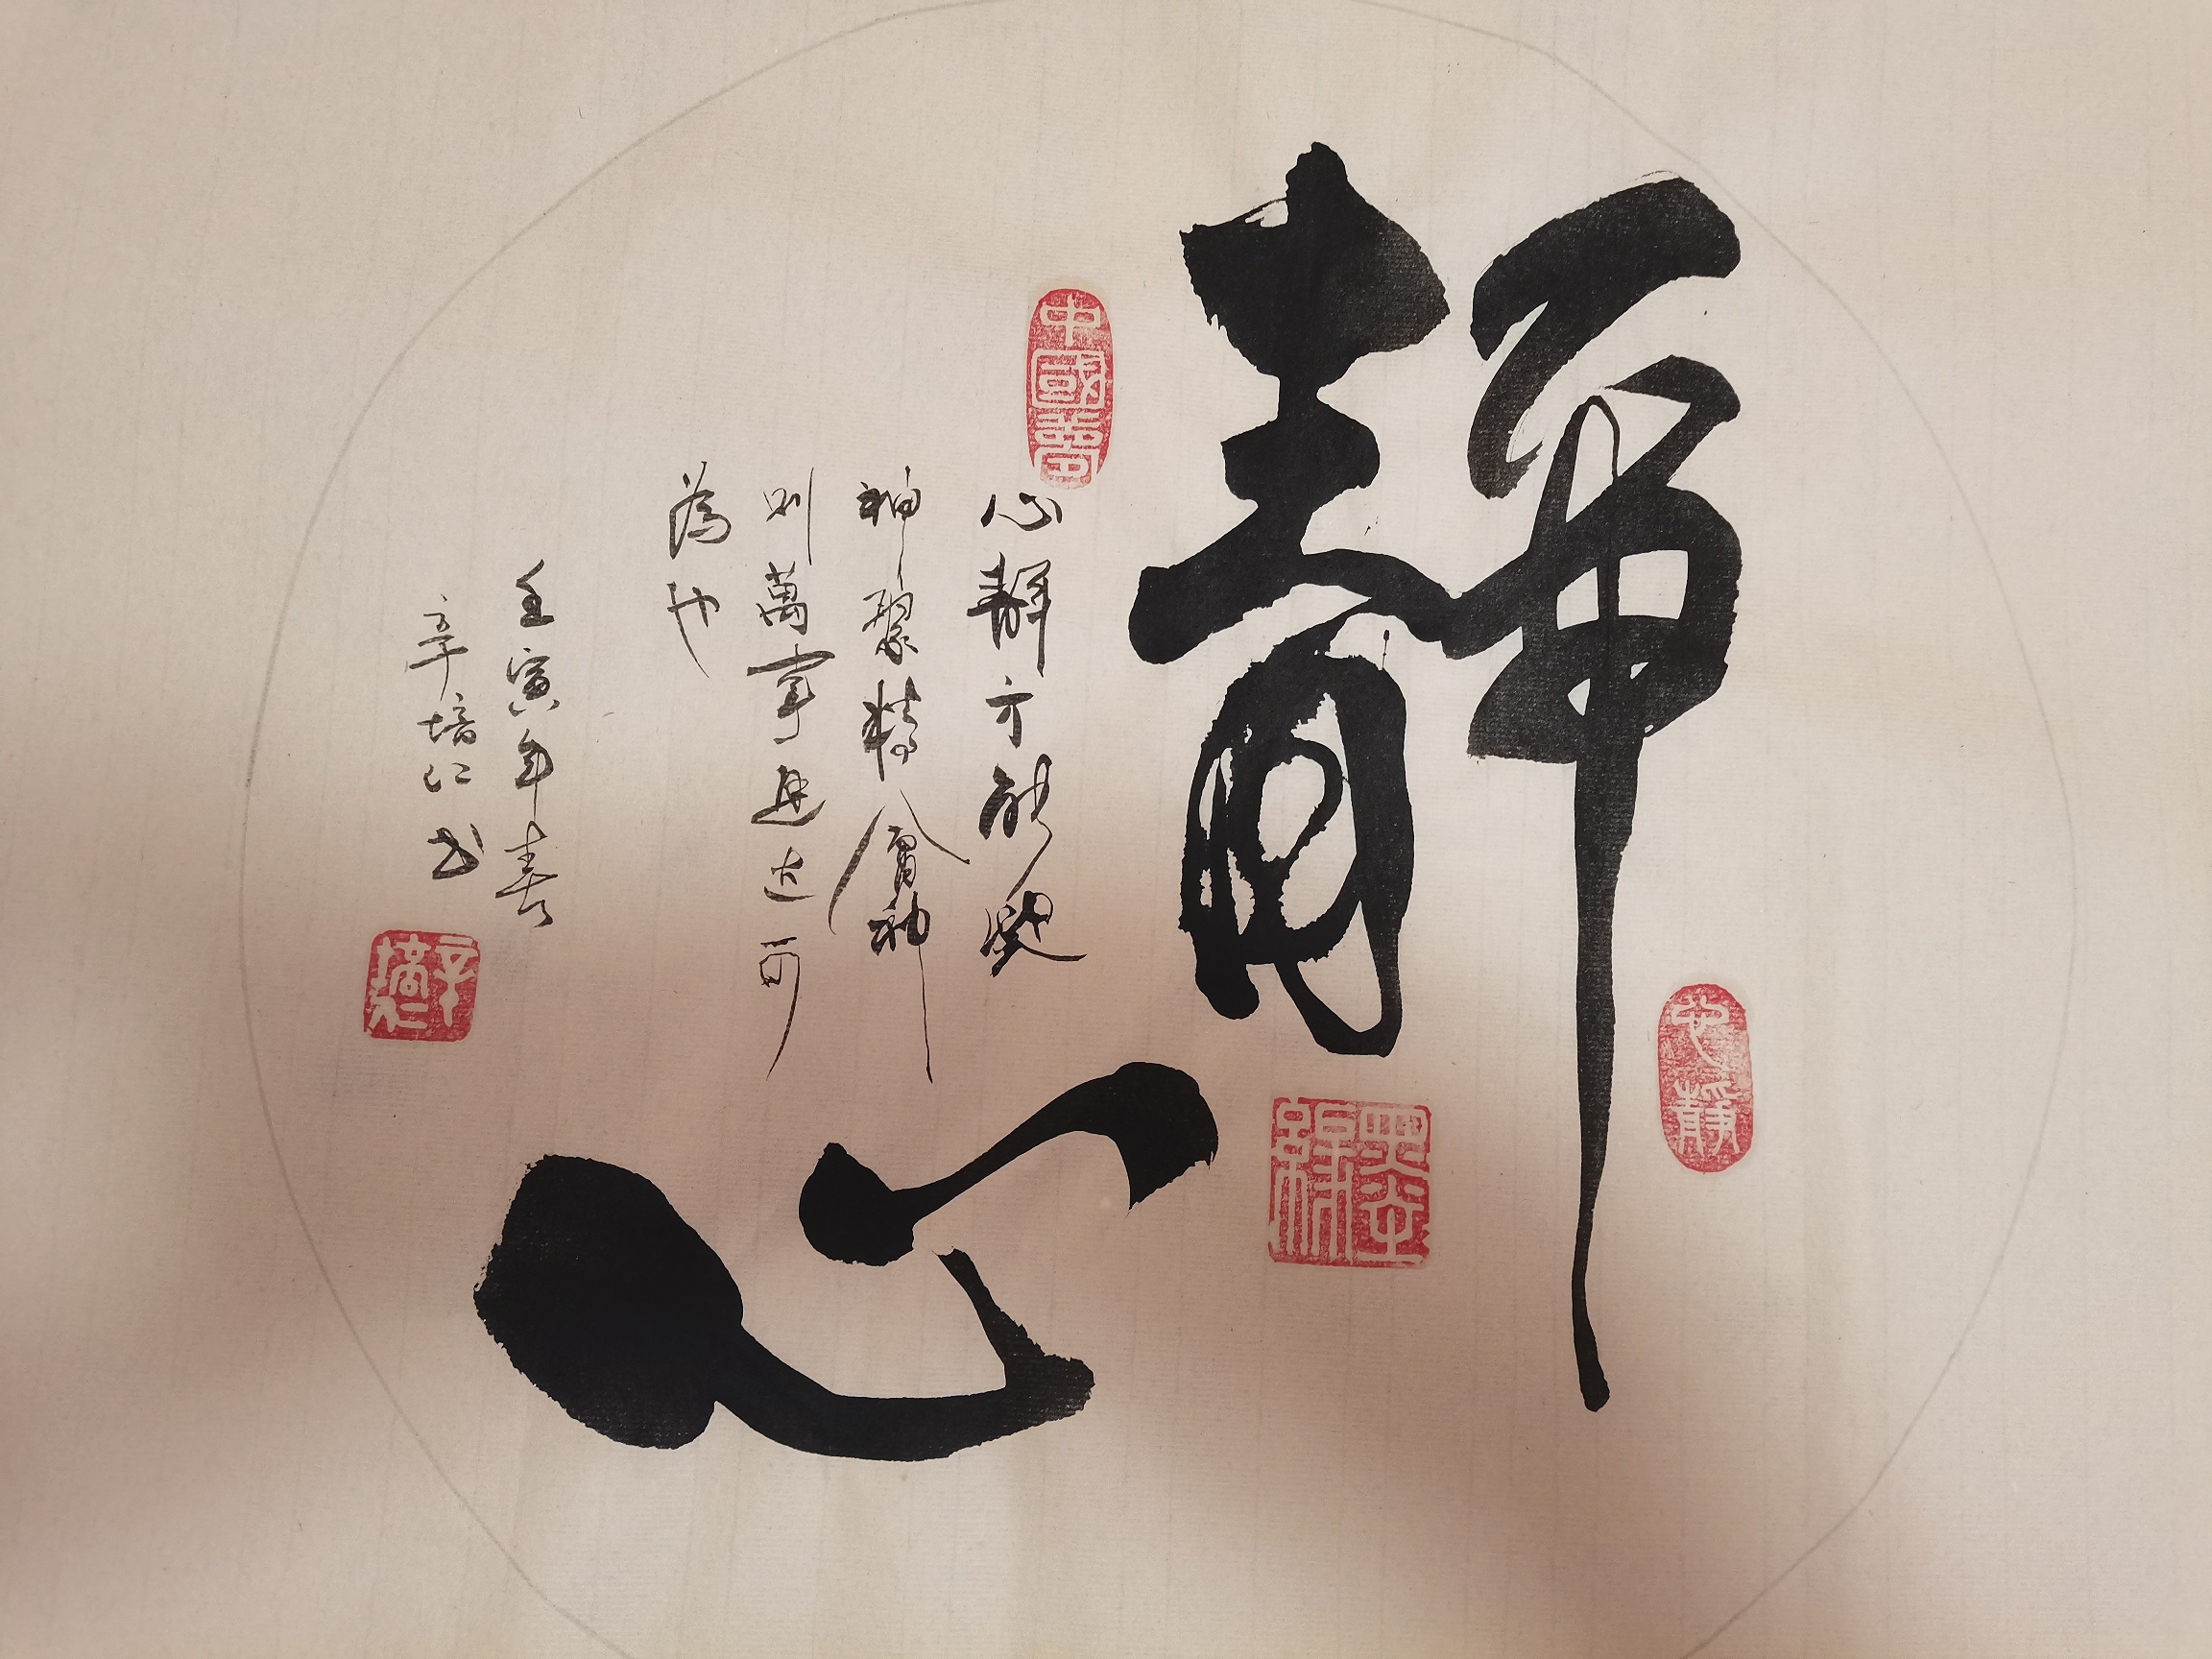 靜
心
中國夢
心靜方能凝
神聚精會神
則萬事通达可
為也
壬寅年春
辛培仁书
辛培仁
心靜